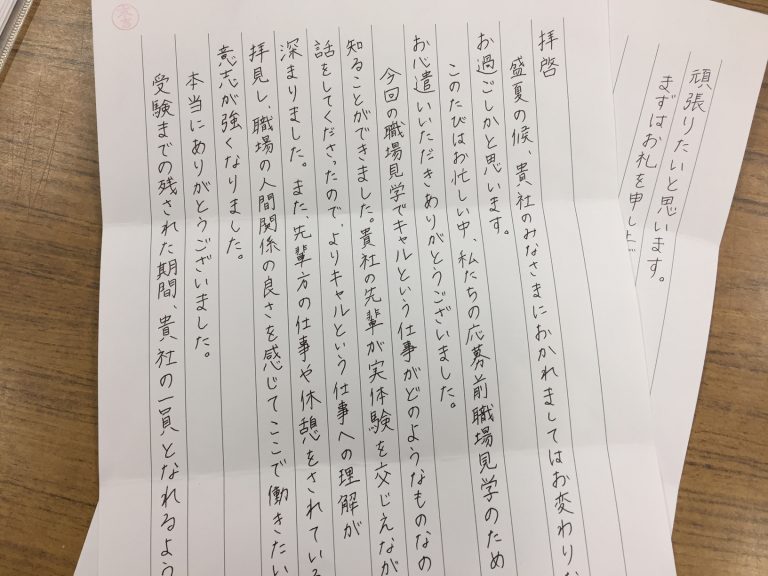 拝啓
盛夏の候、貴社のみなさまにおかれましてはお変わりな
お過ごしかと思います。
このたびはお忙しい中、私たちの応募前職場見学のため
お心遣いいただきありがとうございました。
今回の職場見学でキャルという仕事がどのようなものなの
知ることができました。貴社の先輩が実体験を交じえなが
話をしてくださったので、よりキャルという仕事への理解が
深まりました。また、先輩方の仕事や休憩をされている
拝見し、職場の人間関係の良さを感じてここで働きたい
意志が強くなりました。
本当にありがとうございました。
受験までの残された期間、貴社の一員となれるよう
頑張りたいと思います。
まずはお礼を申し上